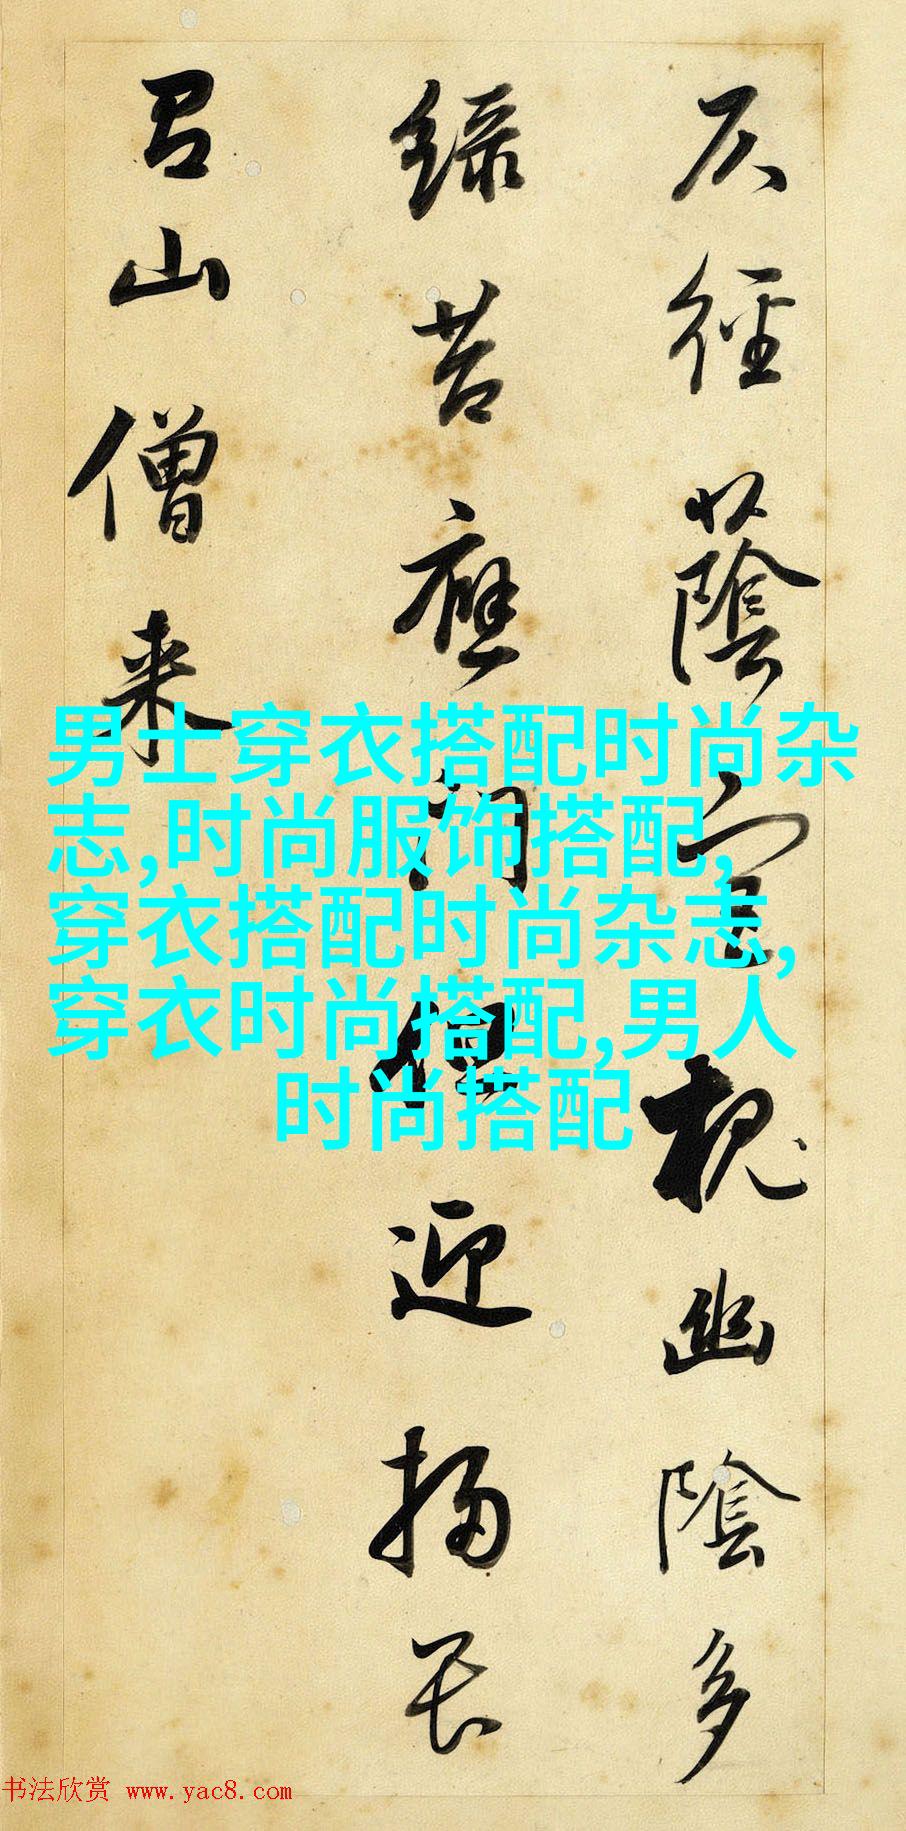 仄徑蔭宮槐幽陰多
綠苔應門但迎掃畏
山僧来
男士穿衣搭配时尚杂
志,时尚服饰搭配,
穿衣搭配时尚杂志,
穿衣时尚搭配,男人
时尚搭配
书法欣赏 www.yac8.com